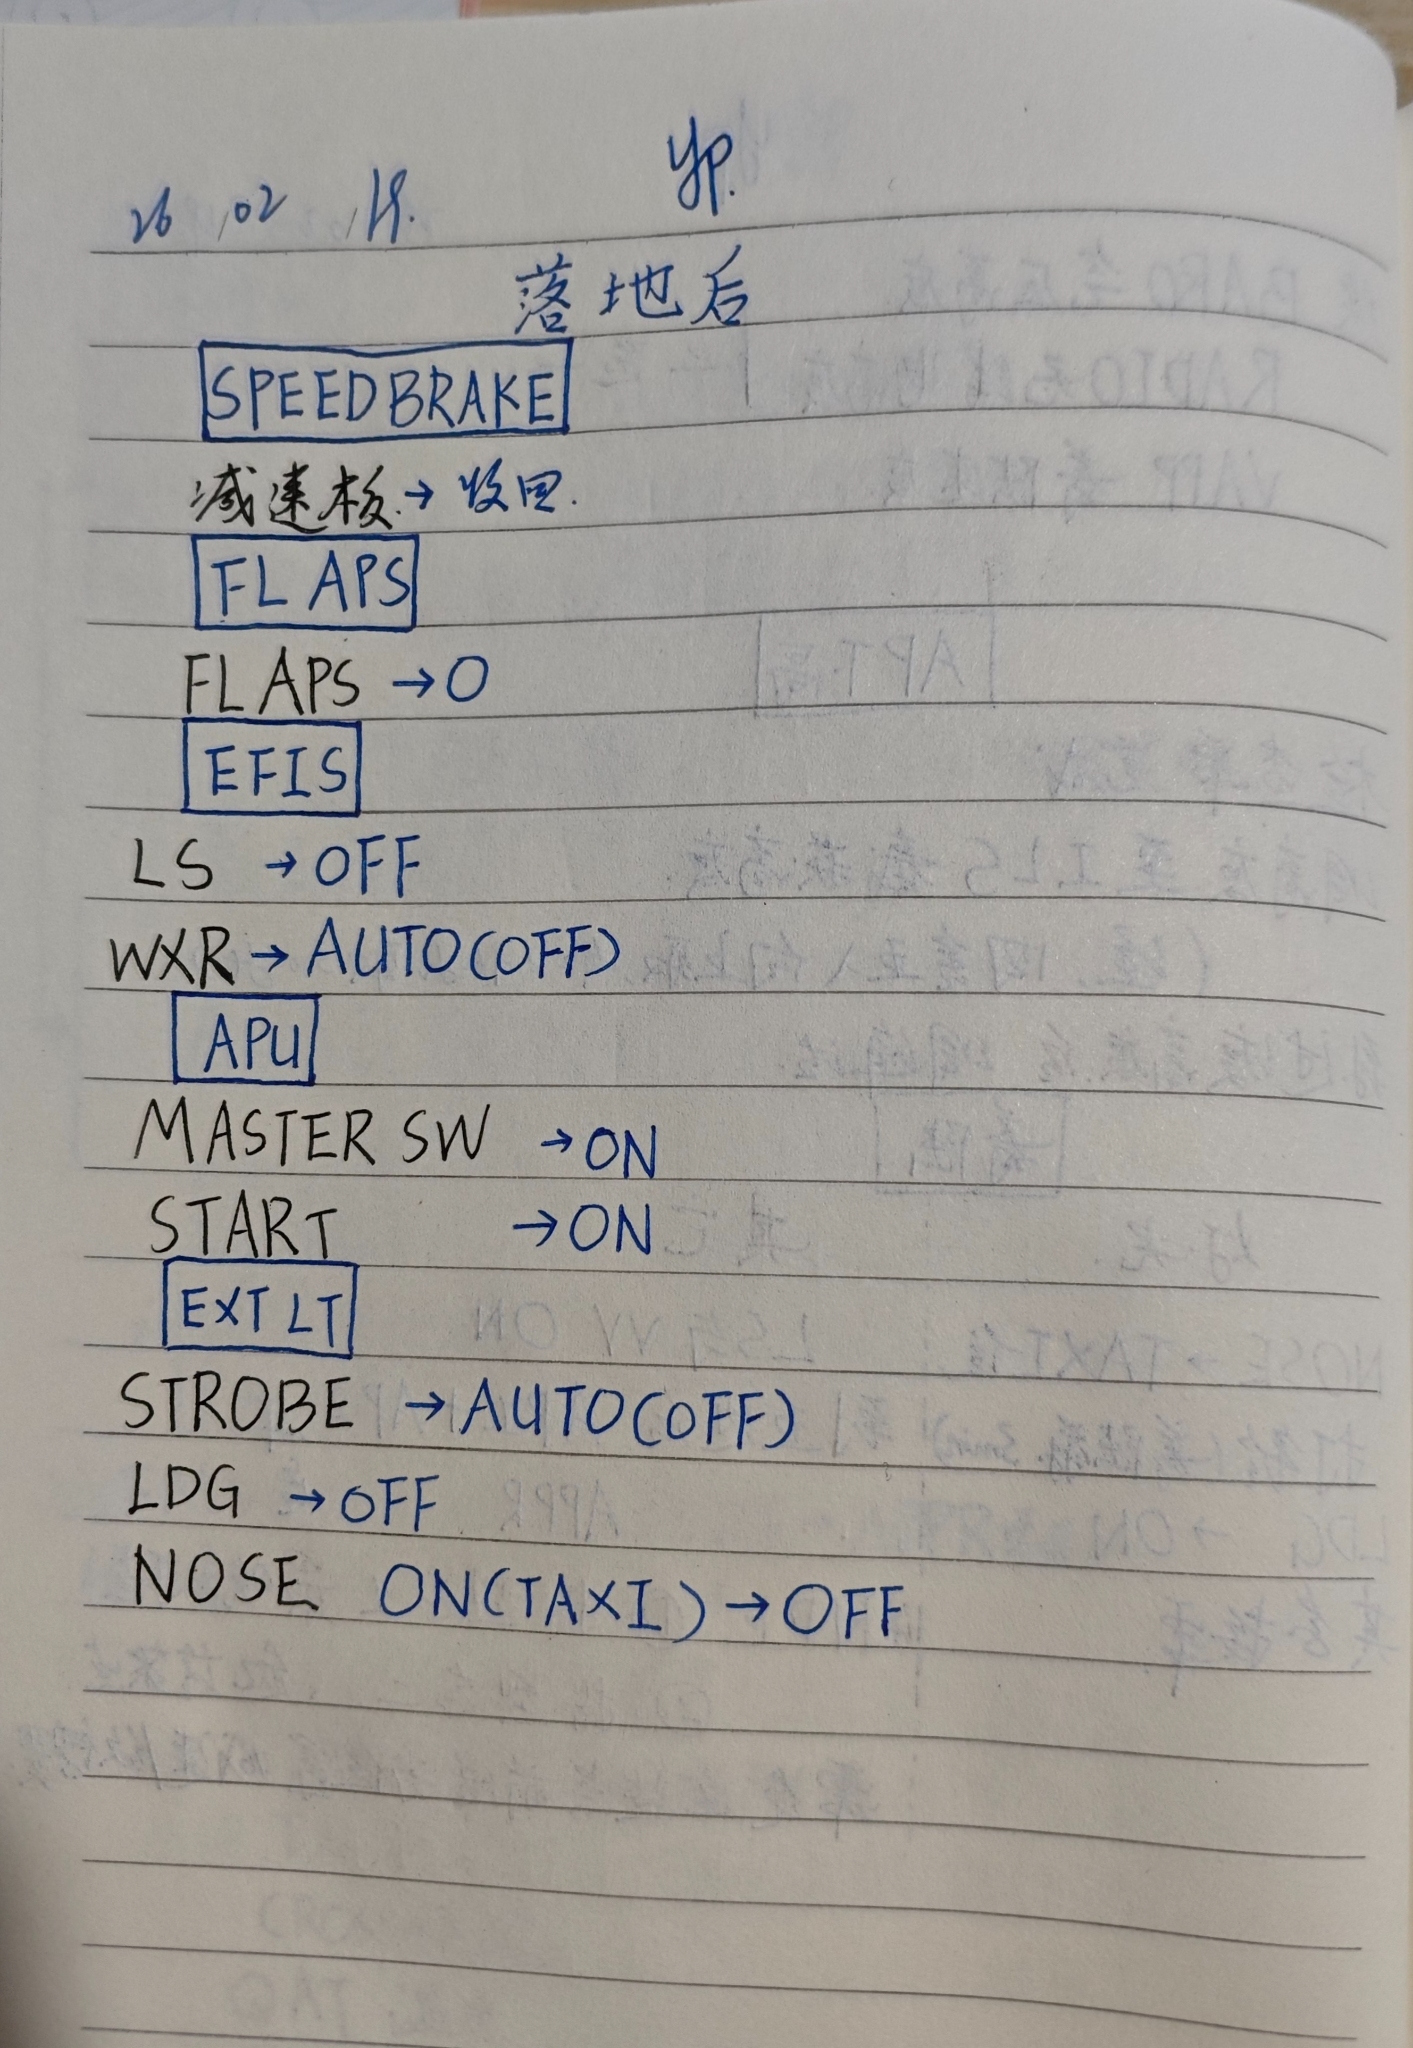 26.02.19. yp.
落地后
SPEEDBRAKE
减速板→收回.
FLAPS
FLAPS →0
EFIS
LS →OFF
WXR→AUTO(OFF)
APU
MASTER SW →ON
START →ON
EXT LT
STROBE →AUTO(OFF)
LDG →OFF
NOSE ON(TAXI)→OFF